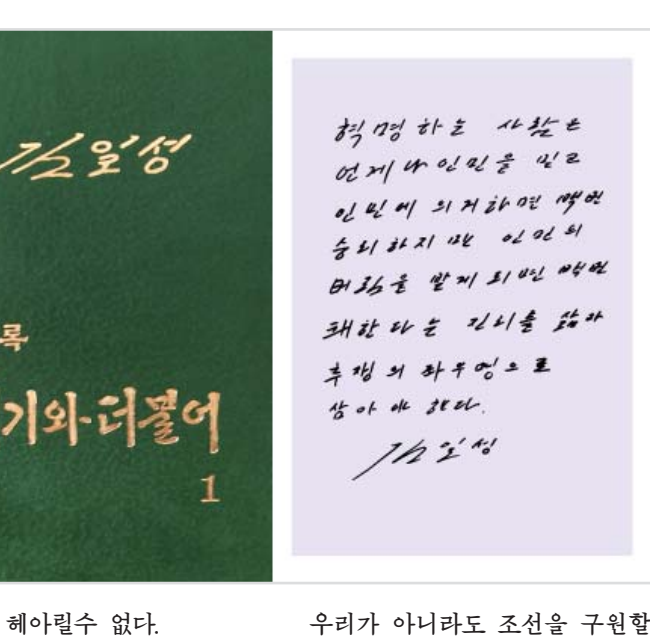 김일성
록
기와 더불어
1
혁명하는 사람은
언제나 인민을 믿고
인민에 의거하면 백번
승리하지만 인민의
버림을 받게 되면 백번
패한다는 진리를 삶과
투쟁의 좌우명으로
삼아야 한다.
김일성
헤아릴수 없다.
우리가 아니라도 조선을 구원할